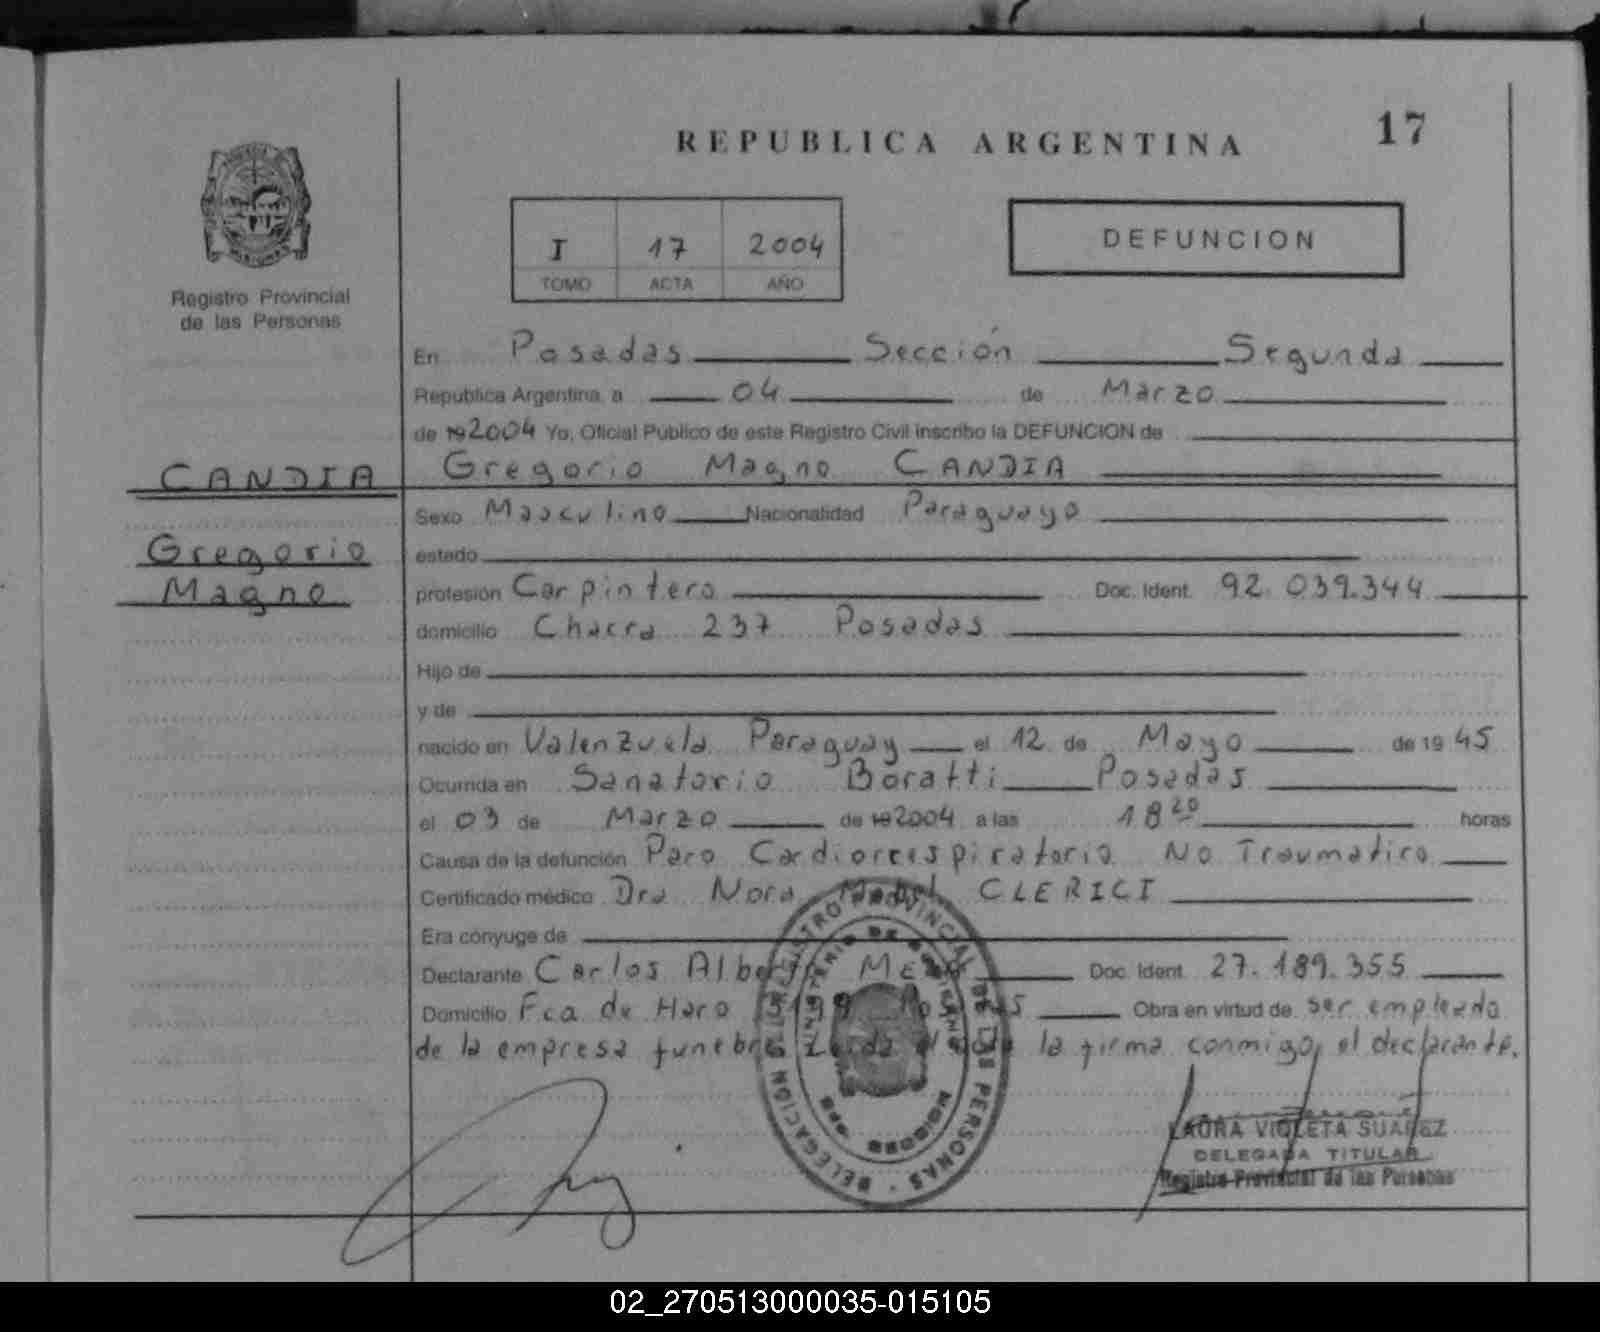 REPUBLICA ARGENTINA
17
I 17 2004
TOMO ACTA AÑO
DEFUNCION
Registro Provincial
de las Personas
En Posadas Sección Segunda
Republica Argentina, a 04 de Marzo
de 192004 Yo, Oficial Público de este Registro Civil inscribo la DEFUNCION de
CANDIA
Gregorio Magno CANDIA
Sexo Masculino Nacionalidad Paraguayo
Gregorio
Magno
estado
profesión Carpintero Doc. Ident. 92.039.344
domicilio Chacra 237 Posadas
Hijo de
y de
nacido en Valenzuela Paraguay el 12 de Mayo de 19 45
Ocurrida en Sanatorio Boratti Posadas
el 03 de Marzo de 192004 a las 18 20 horas
Causa de la defunción Paro Cardiorrespiratorio No Traumatico
Certificado médico Dra Nora Mabel CLERICI
Era cónyuge de
Declarante Carlos Alberto Doc. Ident. 27.189.355
Domicilio Fca de Haro Posadas Obra en virtud de ser empleado
de la empresa funebre Leida el acta la firma conmigo, el declarante.
REGISTRO PROVINCIAL DE LAS PERSONAS
DELEGACION
MINISTERIO DE GOBIERNO
MISIONES
LAURA VIOLETA SUAREZ
DELEGADA TITULAR
Registro Provincial de las Personas
02_270513000035-015105